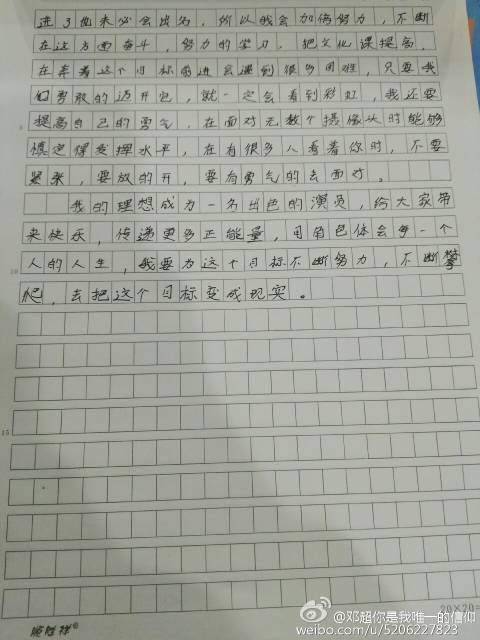 进了也未必会出名，所以我会加倍努力，不断
在这方面奋斗，努力的学习，把文化课提高，
在奔着这个目标前进会遇到很多困难，只要我
们勇敢的迈开它，就一定会看到彩虹，我还要
提高自己的勇气，在面对无数个摄像头时能够
镇定得发挥水平，在有很多人看着你时，不要
紧张，要放的开，要有勇气的去面对。
我的理想成为一名出色的演员，给大家带
来快乐，传递更多正能量，用角色体会每一个
人的人生，我要为这个目标不断努力，不断攀
爬，去把这个目标变成现实。
5
10
15
20×20=
@邓超你是我唯一的信仰
weibo.com/u/5206227823